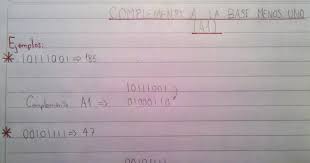 COMPLEMENTO A LA BASE MENOS UNO
(A1)
Ejemplos:
* 10111001 => 185
10111001
Complemento A1 => 01000110
* 00101111 => 47
00101111